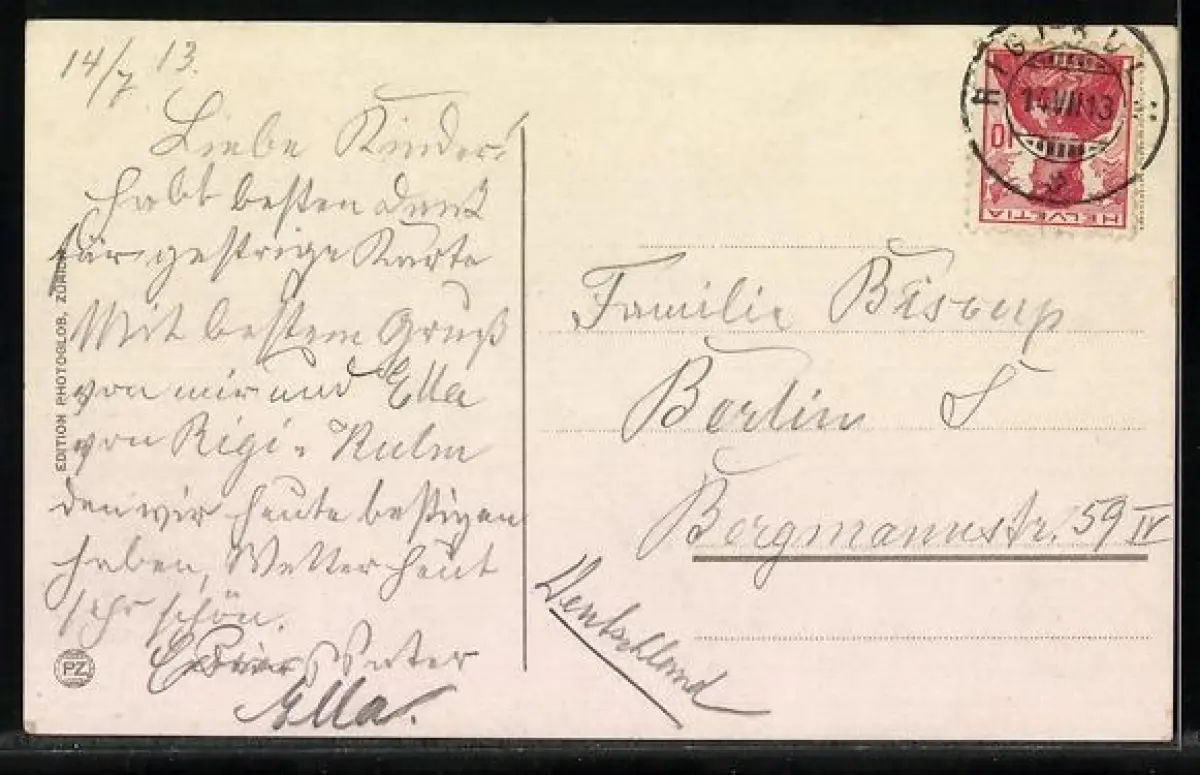 14/7 13.
Liebe Kinder!
Habt besten Dank
für gestrige Karte
Mit bestem Gruß
von mir und Ella
von Rigi-Kulm
den wir heute bestigen
haben, Wetter heut
sehr schön.
Vater
Ella.
EDITION PHOTOGLOB, ZÜRICH
PZ
RIGI-KUL
14.VII.13
10
HELVETIA
Familie
Berlin S
Bergmannstr. 59 IV
Deutschland